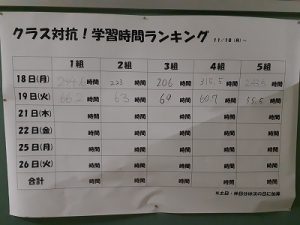 クラス対抗！学習時間ランキング 11/18（月）～
1組 2組 3組 4組 5組
18日(月) 時間 223 時間 206 時間 時間 時間
19日(火) 66.2 時間 63 時間 69 時間 60.7 時間 時間
21日(木) 時間 時間 時間 時間 時間
22日(金) 時間 時間 時間 時間 時間
25日(月) 時間 時間 時間 時間 時間
26日(火) 時間 時間 時間 時間 時間
合計 時間 時間 時間 時間 時間
※土日・休日分は次の日に加算